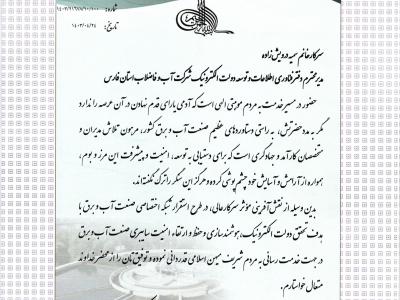 شماره: ۱۴۰۳/۹۱۶۸۷/۹۰/۱۰۰
تاریخ: ۱۴۰۳/۰۸/۲۴
سرکار خانم سمیه درویش زاده
مدیر محترم دفتر فناوری اطلاعات و توسعه دولت الکترونیک شرکت آب و فاضلاب استان فارس
حضور در مسیر خدمت به مردم موهبتی الهی است که آدمی یارای قدم نهادن در آن عرصه را ندارد
مگر به مدد حضرتش، به راستی دستاوردهای عظیم صنعت آب و برق کشور، مرهون تلاش مدیران و
متخصصان کارآمد و جهادگری است که برای دستیابی به توسعه، امنیت و پیشرفت این مرز و بوم،
همواره از آرامش و آسایش خود چشم پوشی کرده و هرگز این سنگر را ترک نگفته‌اند.
بدین وسیله از نقش آفرینی مؤثر سرکارعالی، در طرح استقرار شبکه اختصاصی صنعت آب و برق با
هدف تحقق دولت الکترونیک، هوشمندسازی و حفظ و ارتقاء امنیت سایبری صنعت آب و برق
در جهت خدمت رسانی به مردم شریف میهن اسلامی قدردانی نموده و توفیقتان را از محضر خداوند
متعال خواستارم.